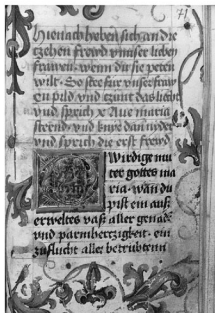 71
hienach heben sich an die
zehen frewd unnser lieben
frawen · wenn du sie peten
wilt · So stee für unser fraw
en pild und zünt das liecht
und sprich x Aue maria
steend · und knye dan nyder
und sprich die erst frewd
O Wirdige mu
ter gottes ma
ria · wan du
pist ein auß
erweltes vaß aller genad
und parmhertzigkeit · ein
zuflucht aller betrübtenn